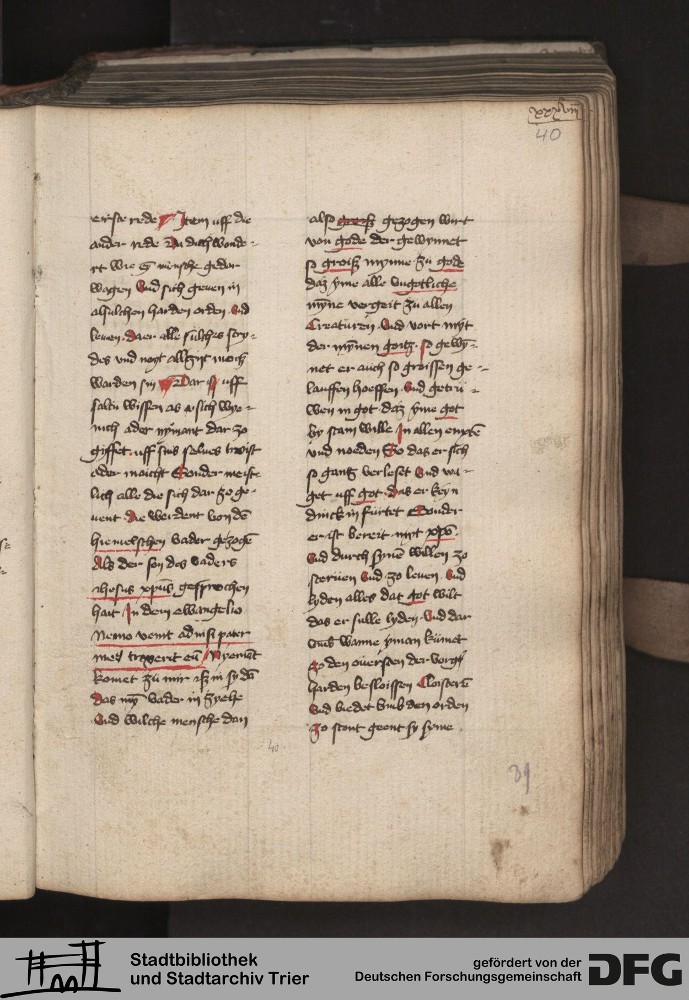 xxxviii
40
erste rede Item uff die
ander rede Du duch wonde-
rt wie eyn mensche gedar
wagen Vnd sich geuen in
alsulchen harden orden vnd
leuen. daer alle sulches stry-
des vnd noyt allzijt moiß
warden sin Dar uff
saltu wissen as sich wye-
nich ader nymant dar zo
giffet uff sins selues troist
ader maicht Sonder meist-
lich alle die sich dar zo ge-
uent. die werdent von dem
hiemelschen vader gezogen
Als der son des vaders
ihesus xpus gesprochen
hait In dem ewangelio
Nemo venit ad me nisi pater
meus traxerit eum Nyemant
komet zu mir is en sy dan
das myn vader in zyehe
Vnd wilche mensche dan
also groiß gezogen wirt
von gode der gewynnet
so groiß mynne zu gode
daz yme alle vngotliche
myne vergeit zu allen
Creaturen. Vnd vort myt
der mynnen gotz. so gewyn-
net er auch so groissen ge-
lauffen hoeffen. Vnd getru-
wen in got daz yme got
by stain wille In allen enxten
vnd noeden So das er sich
so gantz verleset Vnd wa-
get uff got. das er keyn
dinck in fürtet Sonder
er ist bereit myt xpo.
Vnd durch synen willen zo
steruen Vnd zo leuen. Vnd
lyden alles dat got wilt
das er sulle lyden. Vnd dar
vmb wanne yman kümet
zo den ouersten der vorg
harden besloissen Cloistern
Vnd biedet vmb den orden
Zo stont geent sy syme
40
39
Stadtbibliothek
und Stadtarchiv Trier
gefördert von der
Deutschen Forschungsgemeinschaft
DFG